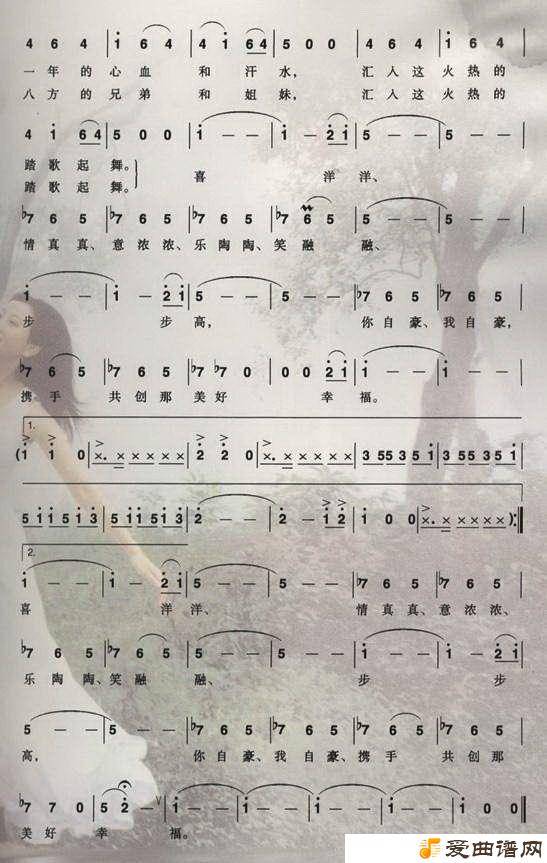 4 6 4 | i 6 4 | 4 i 6 4 | 5 0 0 | 4 6 4 | i 6 4 |
一年的心血 和汗水， 汇入这火热的
八方的兄弟 和姐妹， 汇入这火热的
4 i 6 4 | 5 0 0 | i - - | i - 2 i | 5 - - | 5 - - |
踏歌起舞。 喜 洋洋、
踏歌起舞。
♭7 6 5 | ♭7 6 5 | ♭7 6 5 | ♭7 6 5 | 5 - - | 5 - - |
情真真、意浓浓、乐陶陶、笑融 融、
i - - | i - 2 i | 5 - - | 5 - - | ♭7 6 5 | ♭7 6 5 |
步 步高， 你自豪、我自豪，
♭7 6 5 | ♭7 6 5 | ♭7 ♭7 0 | 0 0 2 i | i - - | i - - |
携手 共创那美好 幸福。
1.
(i i 0 | ×. × × × × × | 2 2 0 | ×. × × × × × | 3 55 3 5 5 i | 3 55 3 5 5 i |
5 i i i 5 i 3 | 5 i i i 5 i 3 | 2 - - | 2 - i 2 | i 0 0 | ×. × × × × × ):‖
2.
i - - | i - 2 i | 5 - - | 5 - - | ♭7 6 5 | ♭7 6 5 |
喜 洋洋、 情真真、意浓浓、
♭7 6 5 | ♭7 6 5 | 5 - - | 5 - - | i - - | i - 2 i |
乐陶陶、笑融 融、 步 步
5 - - | 5 - - | ♭7 6 5 | ♭7 6 5 | ♭7 6 5 | ♭7 6 5 |
高， 你自豪、我自豪、携手 共创那
♭7 7 0 | 5 2 - ∨ | i - - | i - - | i - - | i - - ‖
美好 幸 福。
爱曲谱网